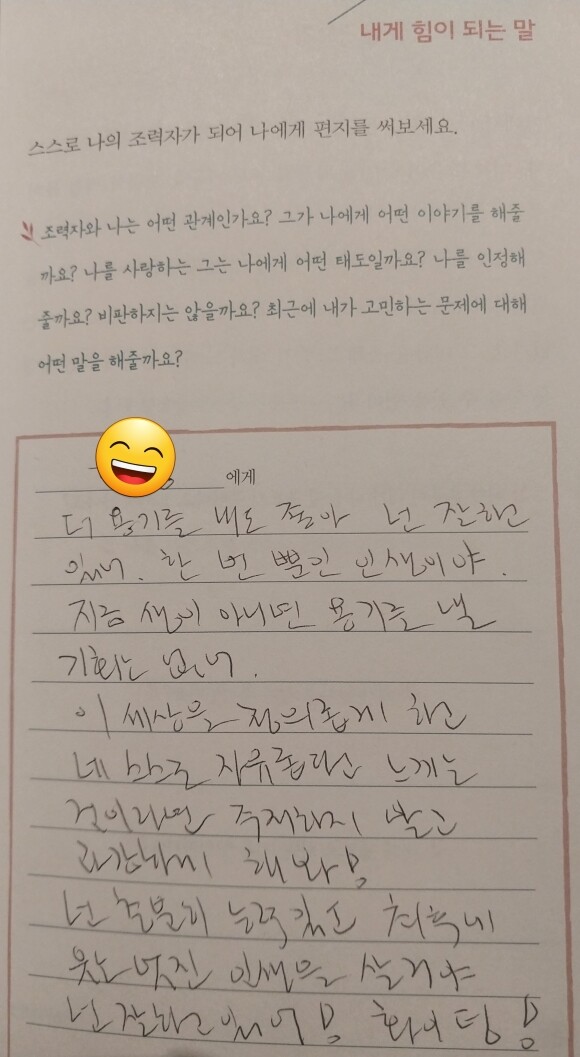 내게 힘이 되는 말
스스로 나의 조력자가 되어 나에게 편지를 써보세요.
조력자와 나는 어떤 관계인가요? 그가 나에게 어떤 이야기를 해줄
까요? 나를 사랑하는 그는 나에게 어떤 태도일까요? 나를 인정해
줄까요? 비판하지는 않을까요? 최근에 내가 고민하는 문제에 대해
어떤 말을 해줄까요?
에게
더 용기를 내도 좋아 넌 잘하고
있어. 한 번 뿐인 인생이야.
지금 생이 아니면 용기를 낼
기회는 없어.
이 세상을 정의롭게 하고
네 맘도 자유롭다고 느끼는
것이라면 주저하지 말고
과감하게 해봐!
넌 충분히 능력있고 최후에
웃는 멋진 인생을 살거야
넌 잘하고 있어! 화이팅!